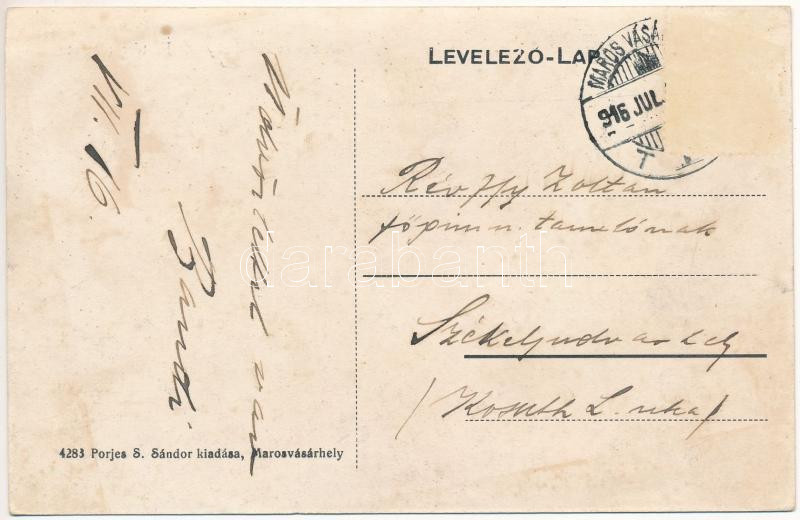 LEVELEZŐ-LAP
MAROS VÁSÁ
916 JUL.
T
VII. 16.
van
Bandi
Zoltan
főgimn. tanulónak
Székelyudvarhely
(Kosuth L. utca)
4283 Porjes S. Sándor kiadása, Marosvásárhely
darabanth